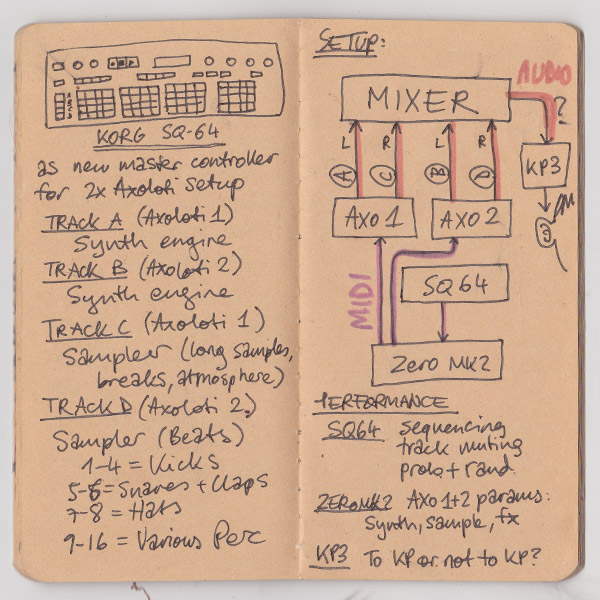 KORG SQ-64
as new master controller
for 2x Axoloti setup
TRACK A (Axoloti 1)
Synth engine
TRACK B (Axoloti 2)
Synth engine
TRACK C (Axoloti 1)
Sampler (long samples,
breaks, atmosphere)
TRACK D (Axoloti 2)
Sampler (Beats)
1-4 = Kicks
5-6 = Snares + Claps
7-8 = Hats
9-16 = Various Perc
SETUP:
AUDIO
MIXER
?
L R L R
A C B D
KP3
AXO 1 AXO 2
SQ64
MIDI
Zero MK2
PERFORMANCE
SQ64 sequencing
track muting
prob. + rand.
ZERO MK2 AXO 1+2 params:
Synth, sample, fx
KP3 To KP or not to KP?